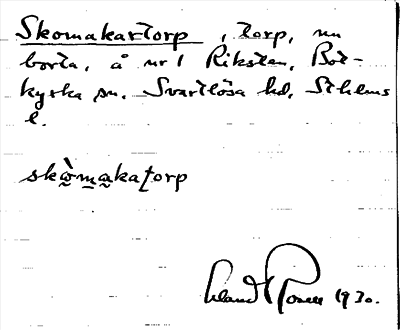 Skomakartorp, torp, nu
borta, å nr 1 Riksten, Bot-
kyrka sn. Svartlösa hd, Sthlms
l.
skò̰m̲a̰katorp
Rosell 1930.